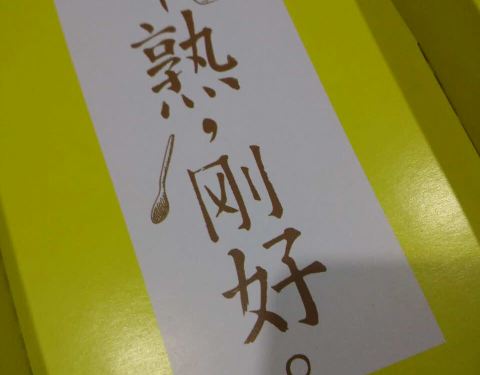 熟,刚好。